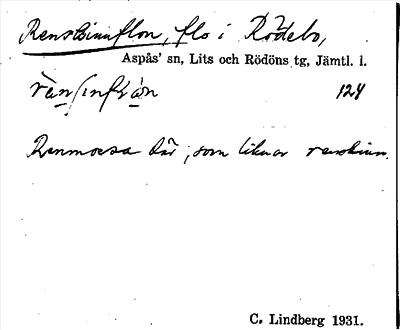 Renskinnflon, flo i Rödebo,
Aspås' sn, Lits och Rödöns tg, Jämtl. l.
124
Renmossa där, som liknar renskinn.
C. Lindberg 1931.